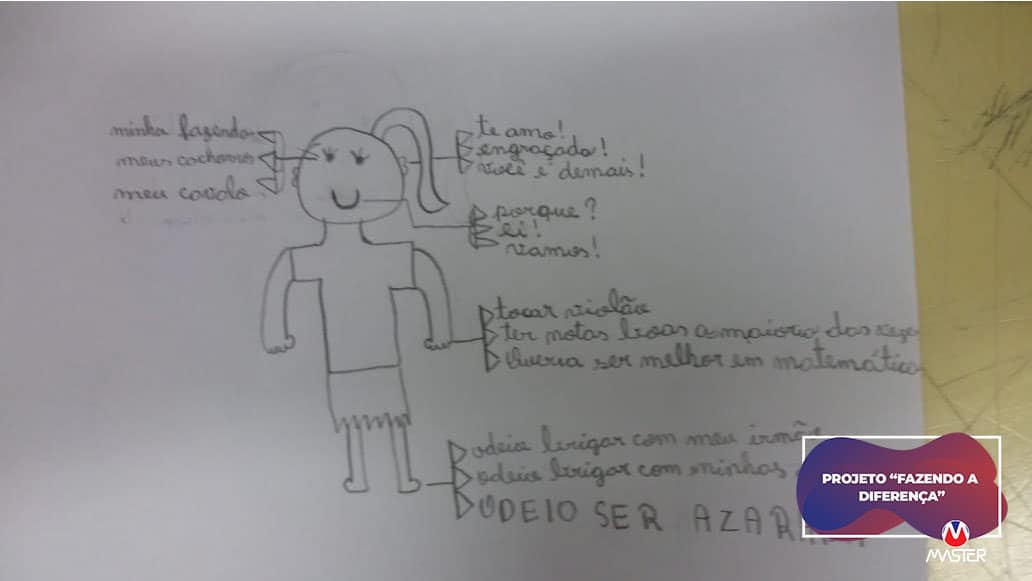 minha fazenda
meus cachorros
meu cavalo
te amo!
engraçado!
você é demais!
porque?
ei!
vamos!
tocar violão
ter notas boas a maioria das veze
Queria ser melhor em matemático
odeio brigar com meu irmão
odeio brigar com minhas
ODEIO SER AZAR
PROJETO “FAZENDO A
DIFERENÇA”
MASTER